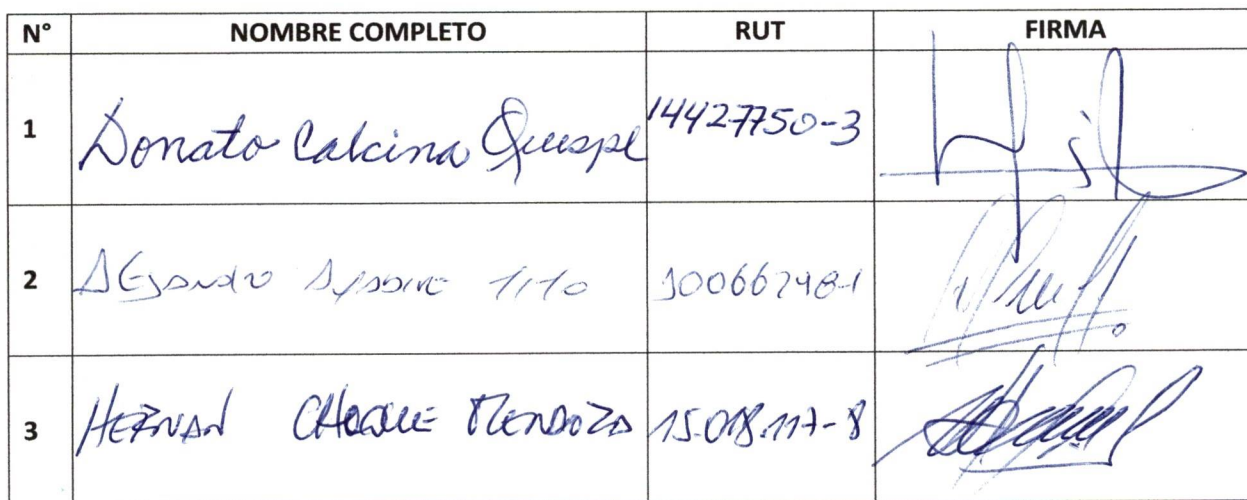 N° NOMBRE COMPLETO RUT FIRMA
1 Donato Calcina Quispe 14427750-3
2 Alejandro Tito
3 HERNAN CHOQUE MENDOZA 15.018.117-8